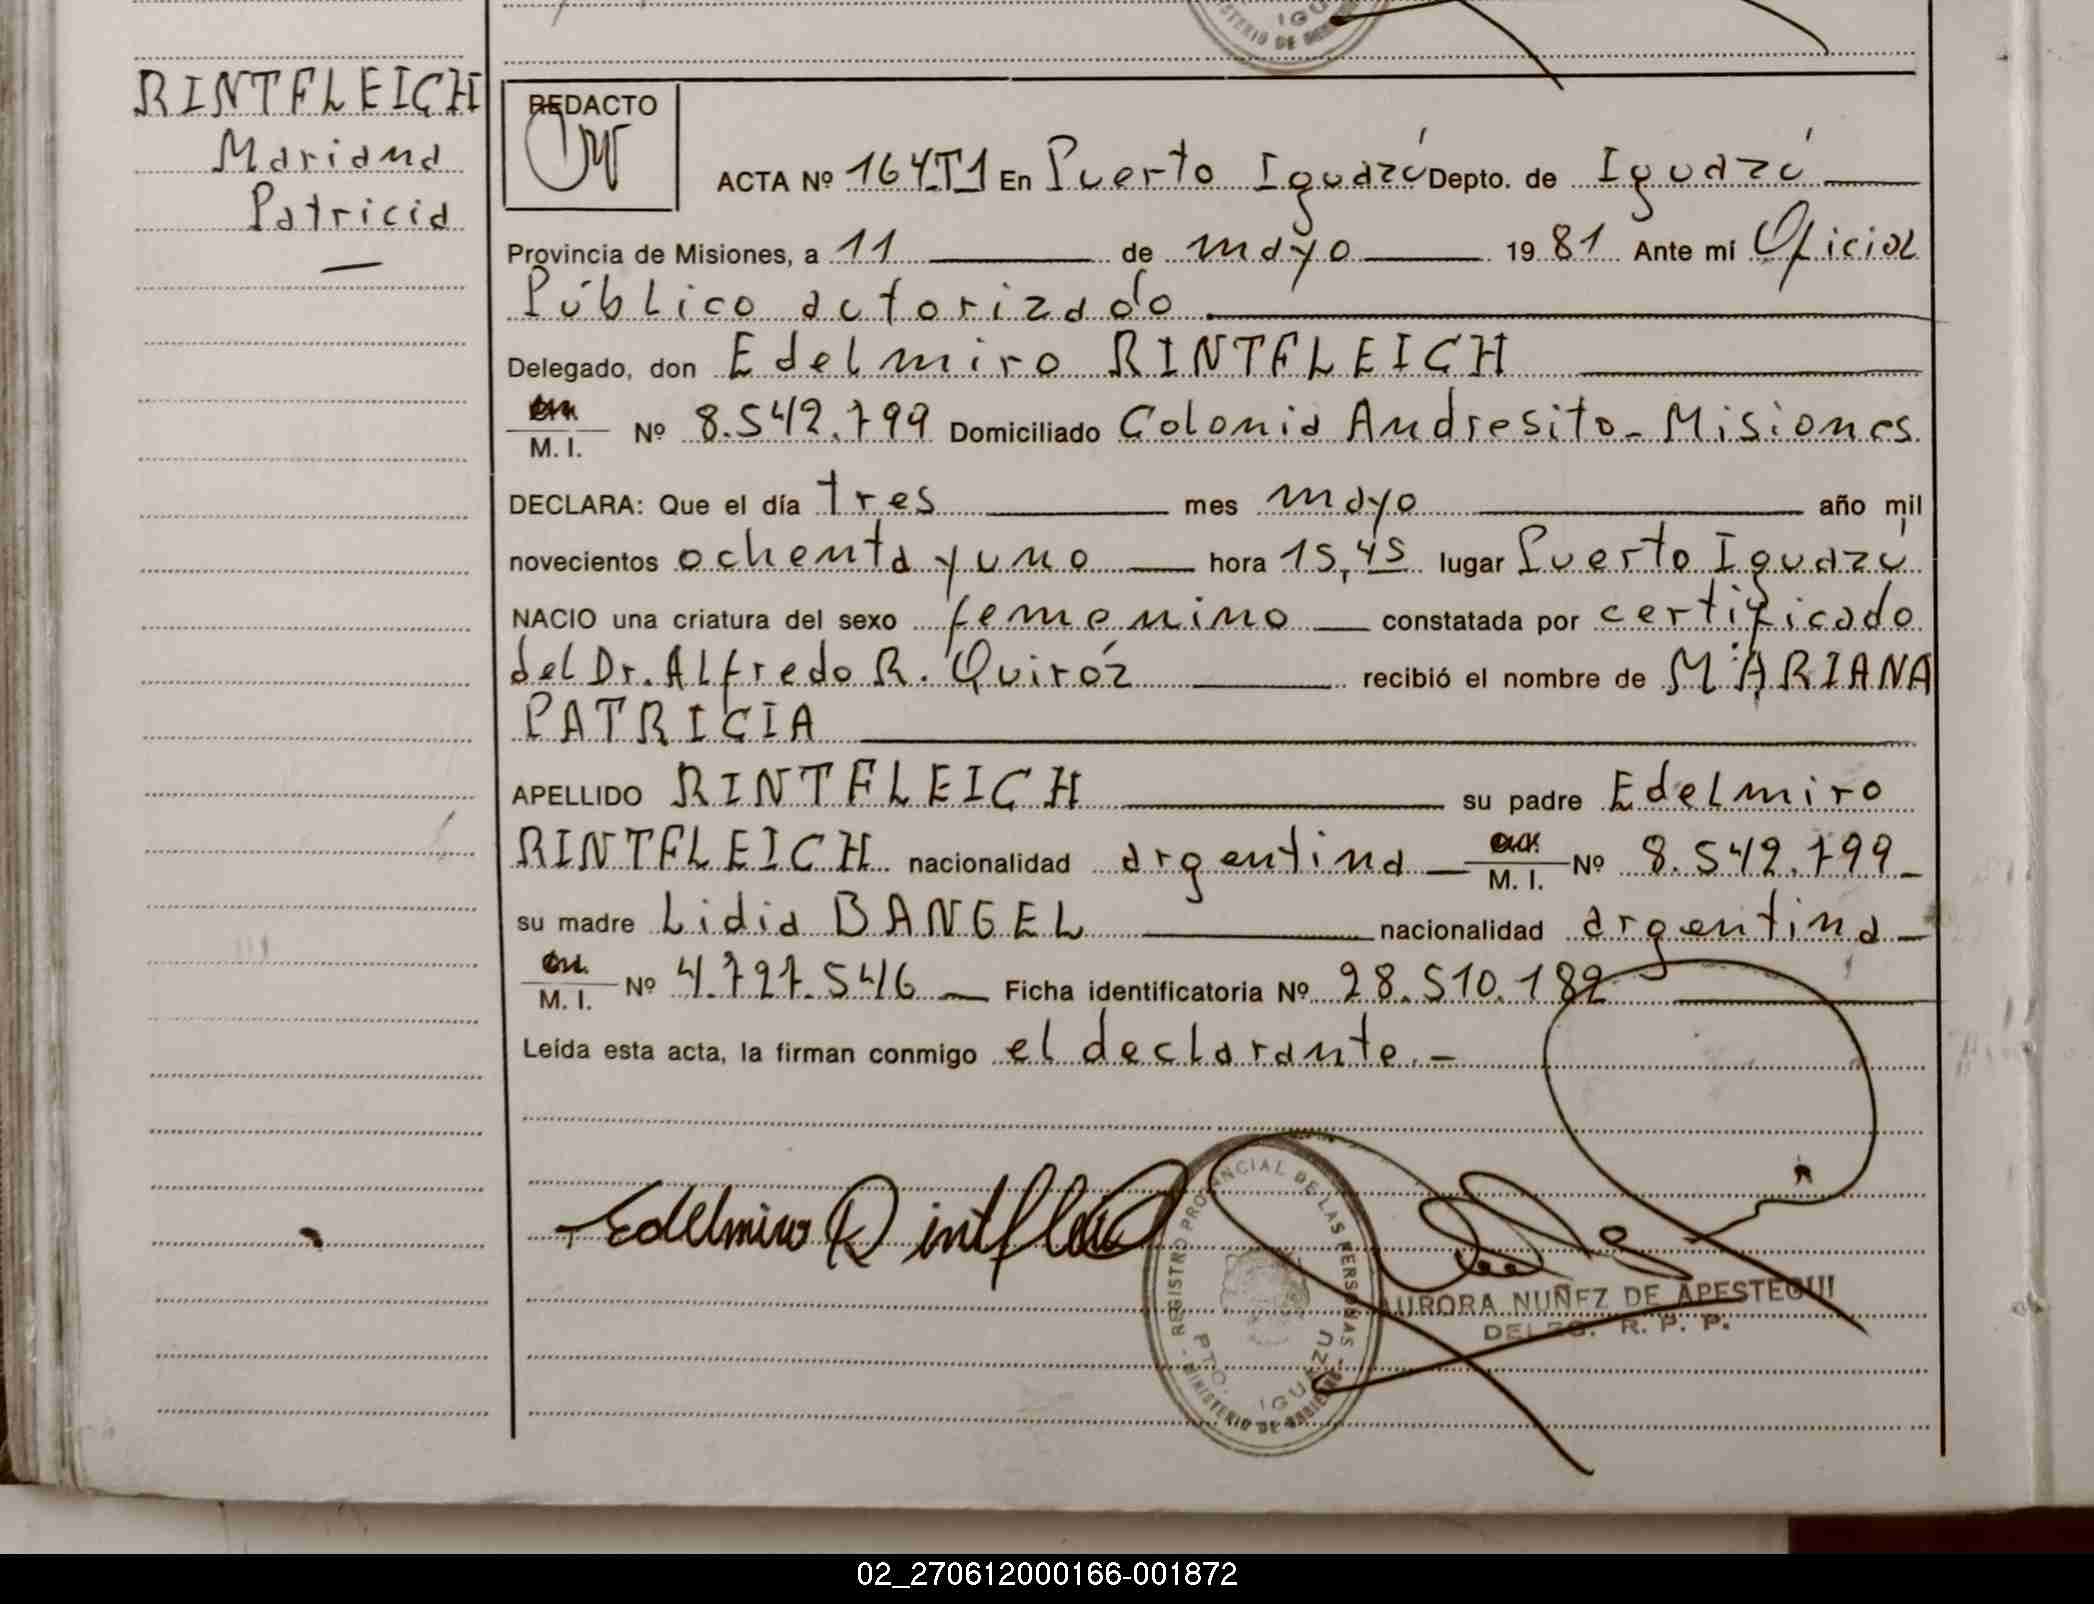 IGU
MINISTERIO DE GOBIERNO
RINTFLEICH
Mariana
Patricia
REDACTO
ACTA Nº 164.T1 En Puerto Iguazú Depto. de Iguazú
Provincia de Misiones, a 11 de mayo 1981 Ante mi Oficial
Público autorizado
Delegado, don Edelmiro RINTFLEICH
M. I. Nº 8.542.799 Domiciliado Colonia Andresito - Misiones
DECLARA: Que el día tres mes mayo año mil
novecientos ochenta y uno hora 15,45 lugar Puerto Iguazú
NACIO una criatura del sexo femenino constatada por certificado
del Dr. Alfredo R. Quiróz recibió el nombre de MARIANA
PATRICIA
APELLIDO RINTFLEICH su padre Edelmiro
RINTFLEICH nacionalidad argentina M. I. Nº 8.542.799 -
su madre Lidia BANGEL nacionalidad argentina -
M. I. Nº 4.727.546 - Ficha identificatoria Nº 28.510.182
Leída esta acta, la firman conmigo el declarante. -
Edelmiro Rintfleich
REGISTRO PROVINCIAL DE LAS PERSONAS
PTO. IGUAZU
MINISTERIO DE GOBIERNO
AURORA NUÑEZ DE APESTEGUI
DELEG. R. P. P.
02_270612000166-001872